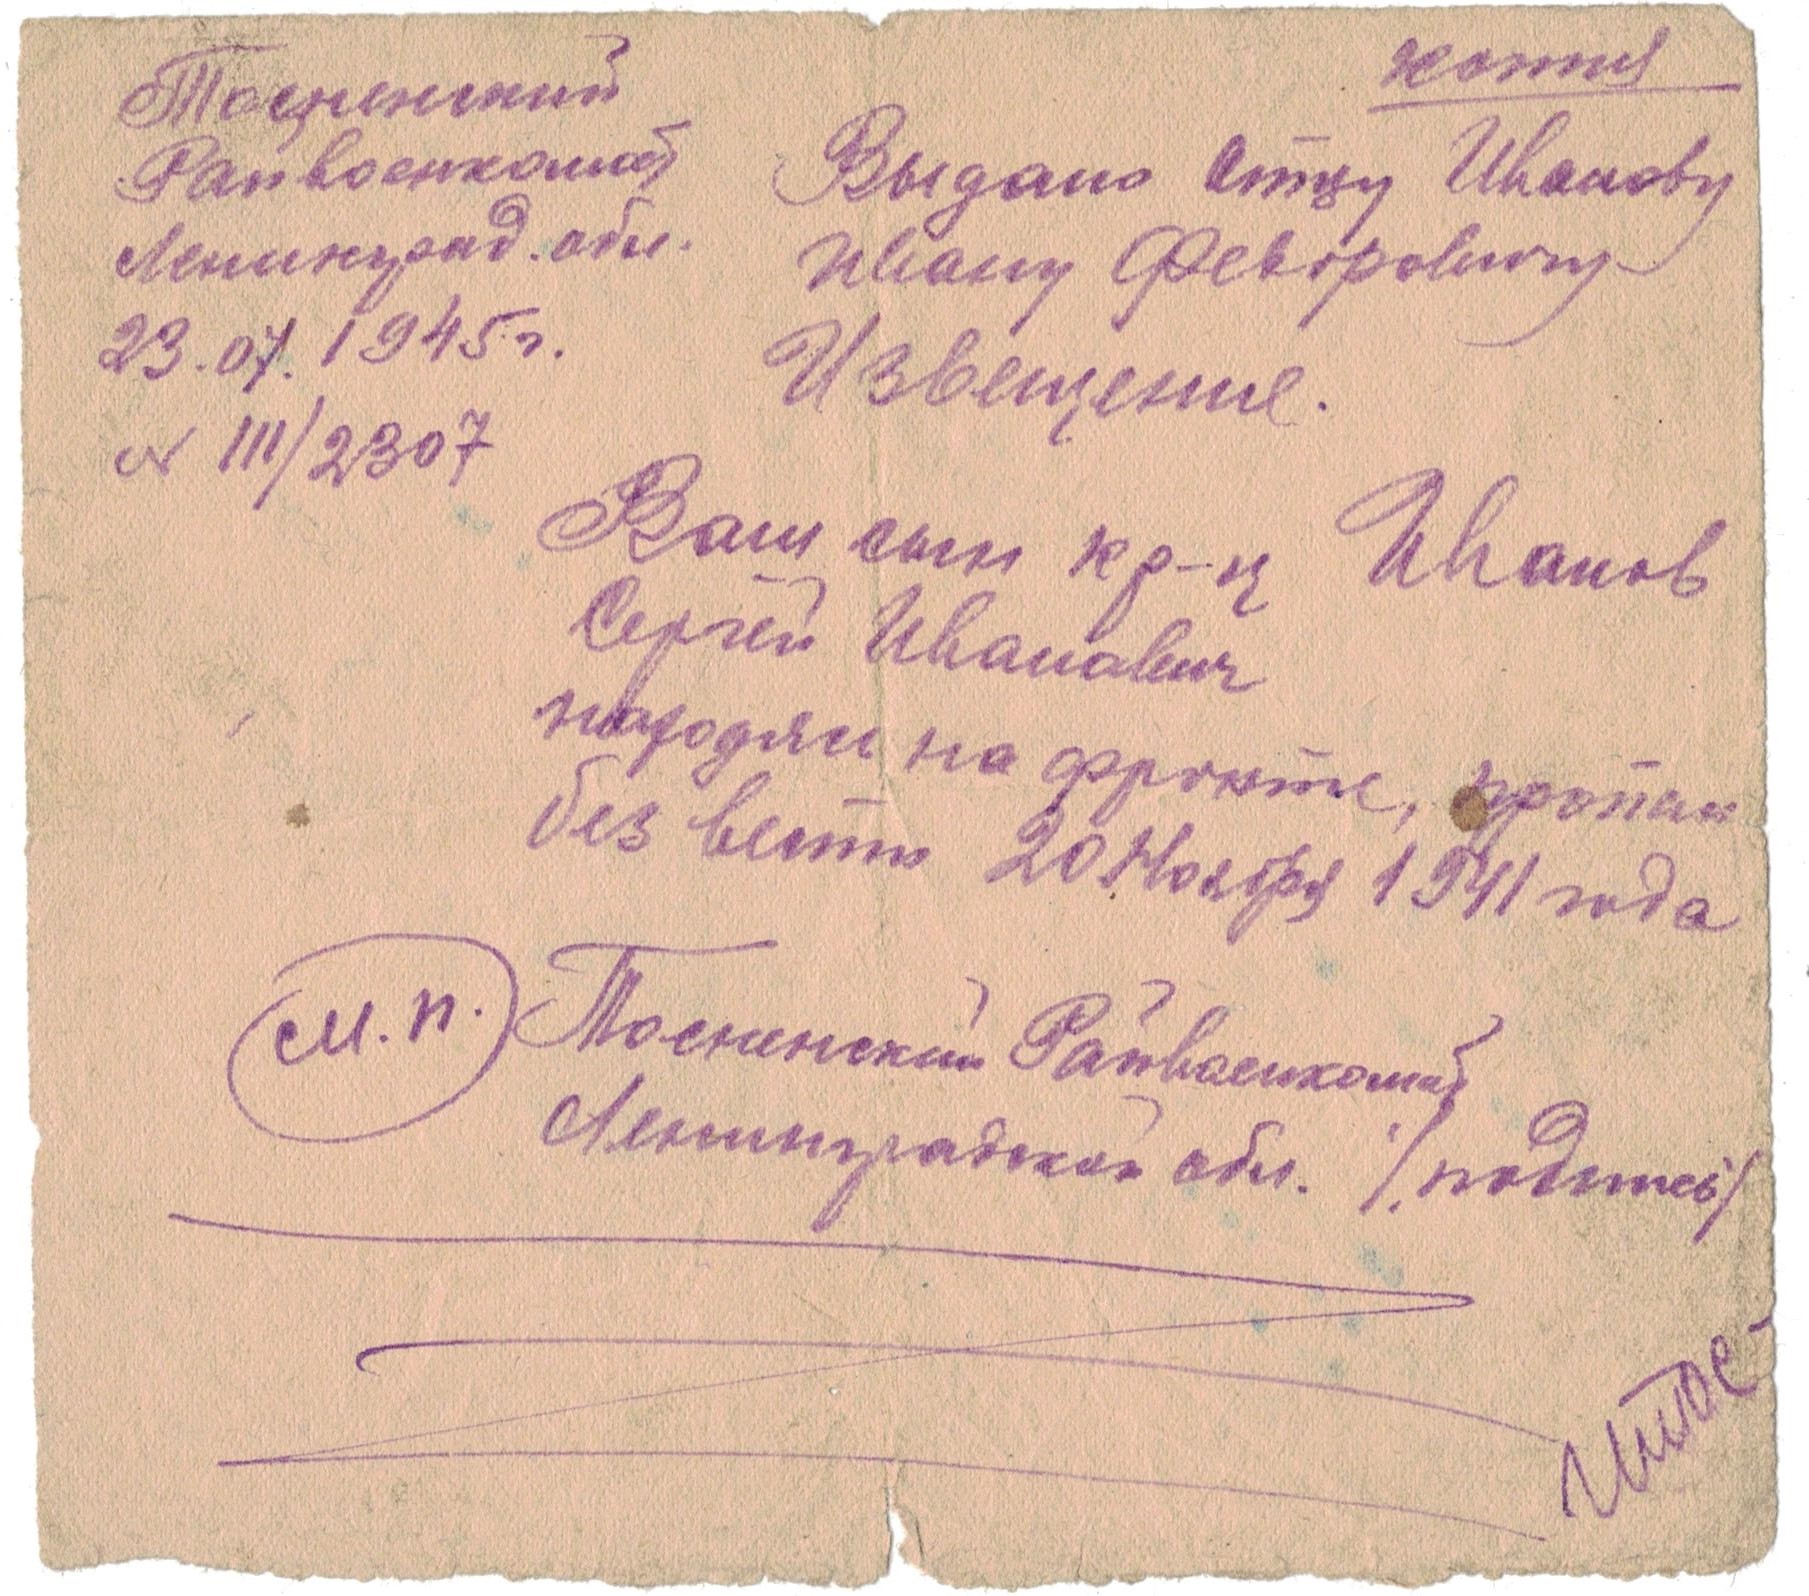 копия
Тосненский
Райвоенкомат
Ленинград. обл.
23.07.1945 г.
№ III/2307
Выдано Отцу Иванову
Ивану Федоровичу
Извещение.
Ваш сын кр-ц Иванов
Сергей Иванович
находясь на фронте, пропал
без вести 20 Ноября 1941 года
М.П.
Тосненский Райвоенкомат
Ленинградской обл. /подпись/